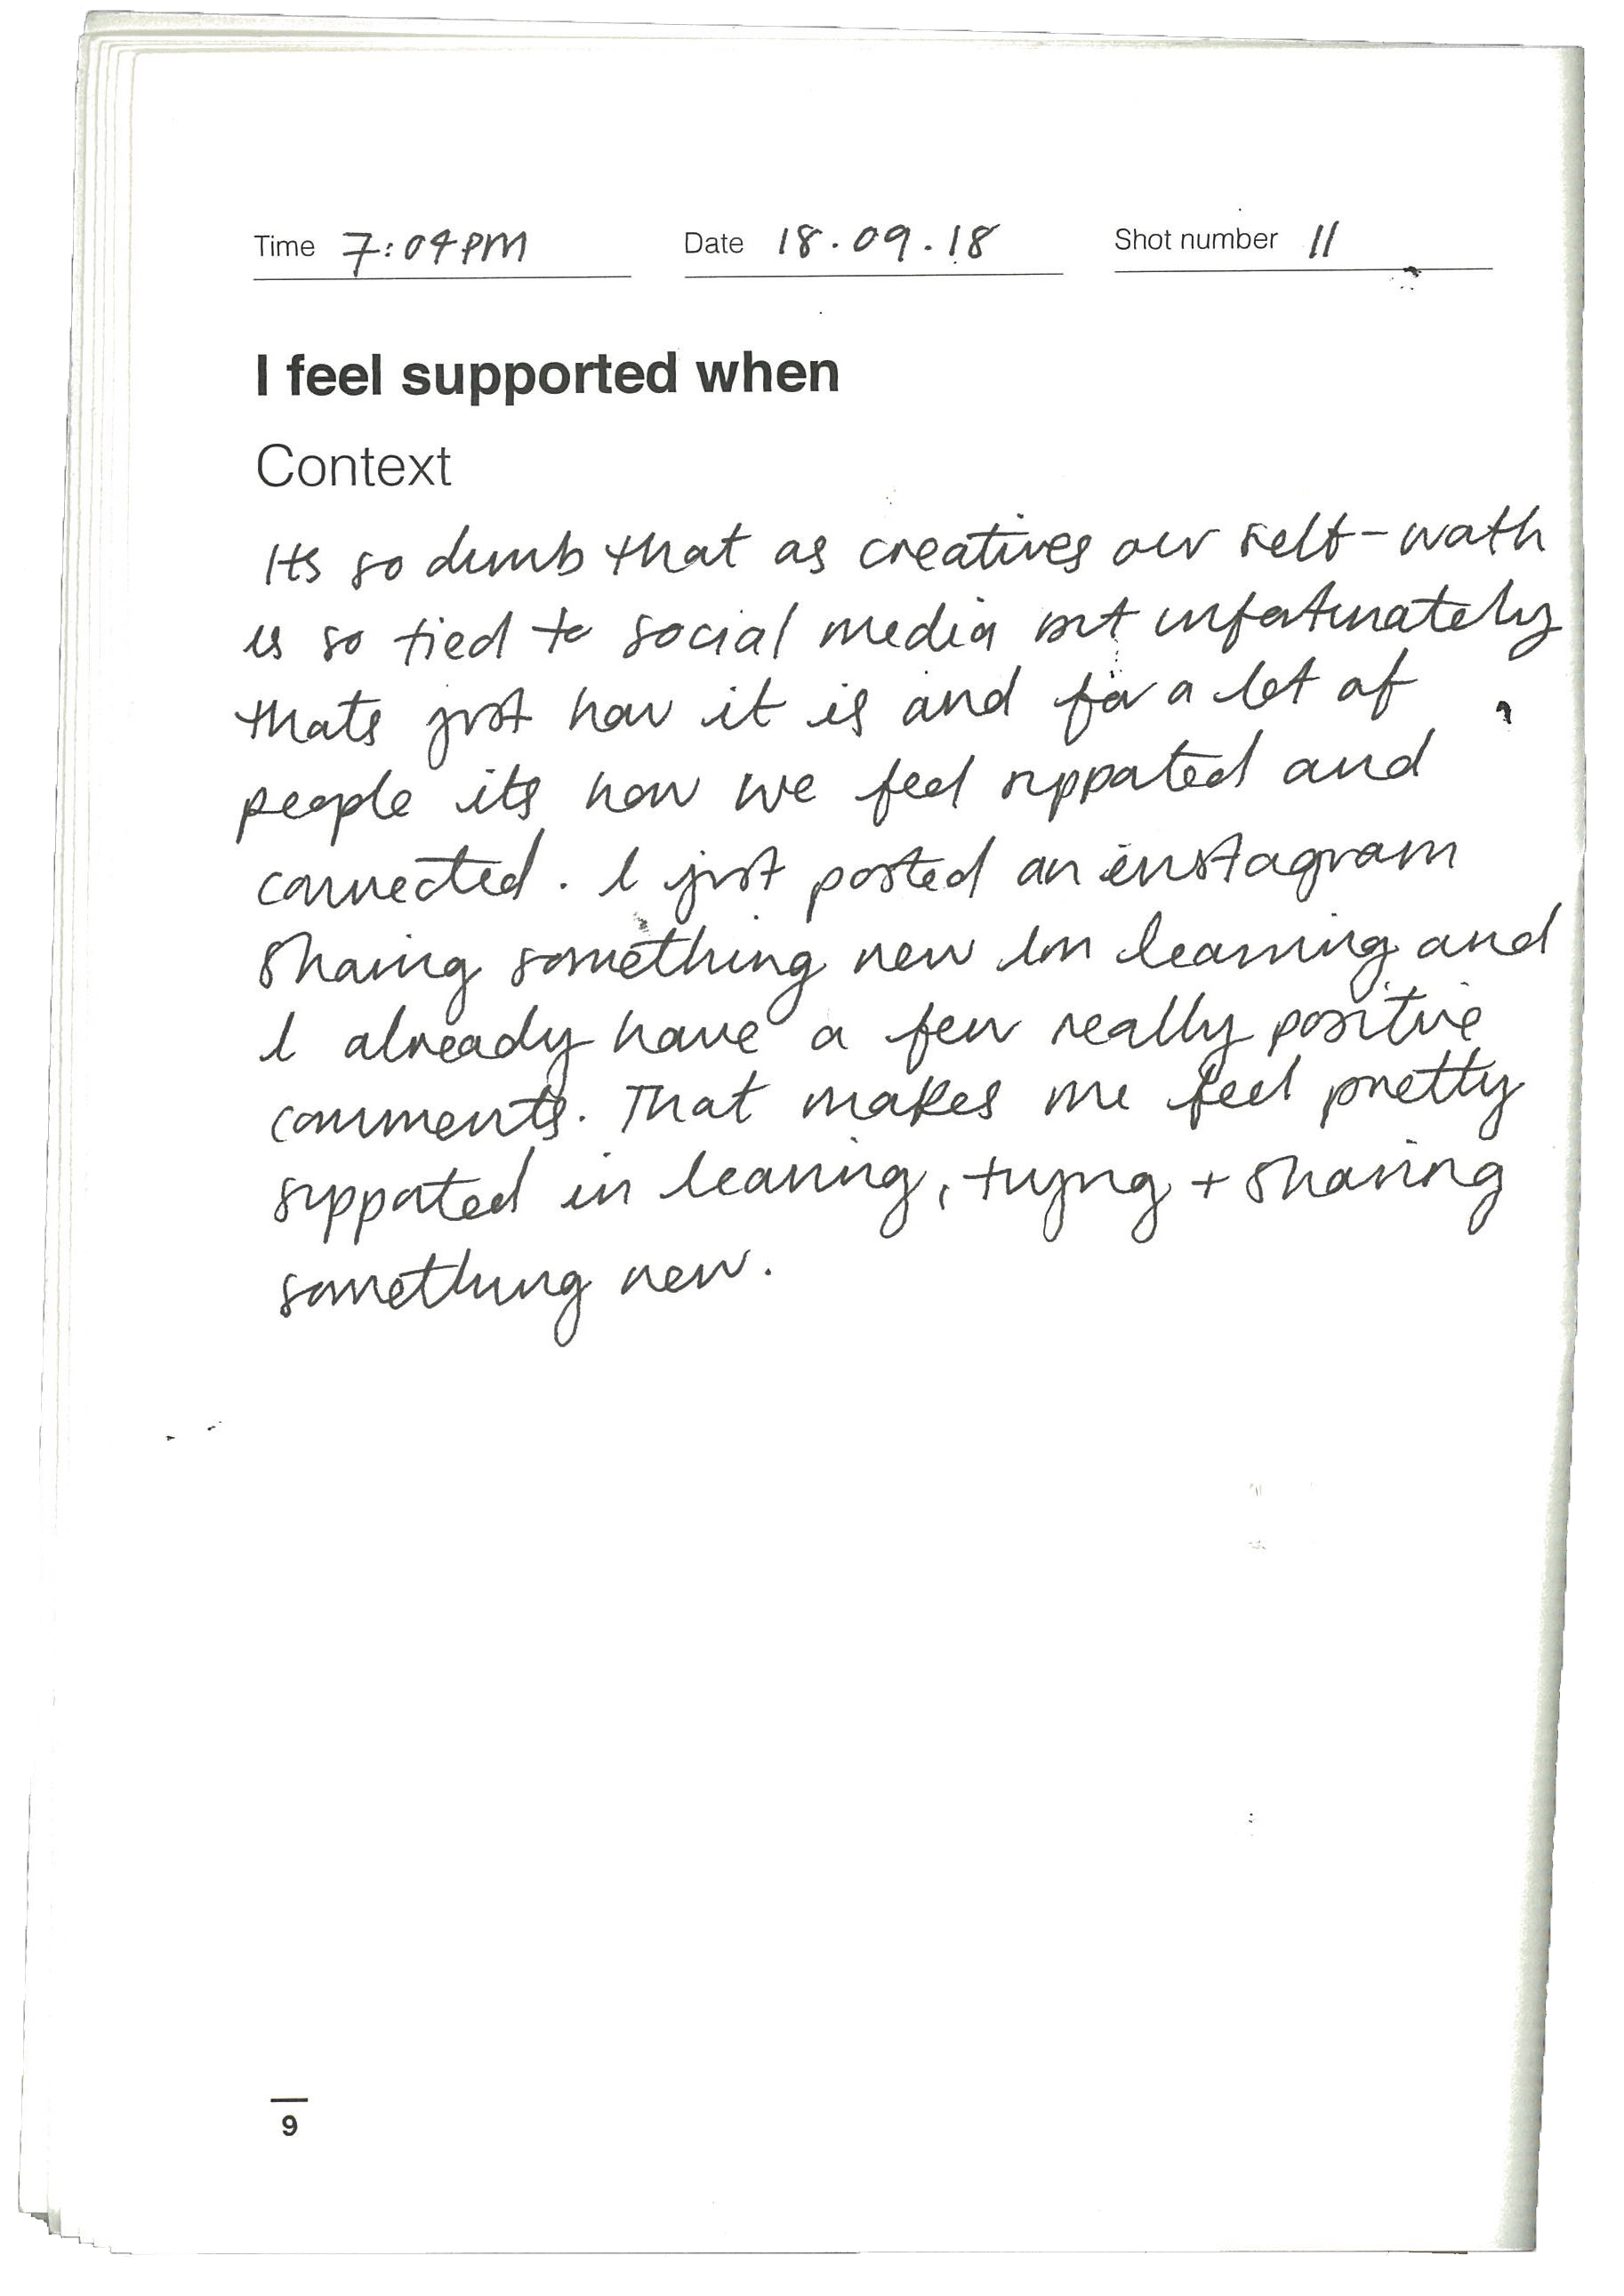 Time 7:04PM Date 18.09.18 Shot number 11
I feel supported when
Context
Its so dumb that as creatives our self-worth
is so tied to social media but unfortunately
thats just how it is and for a lot of
people its how we feel supported and
connected. I just posted an instagram
sharing something new Im learning and
I already have a few really positive
comments. That makes me feel pretty
supported in learning, trying + sharing
something new.
9